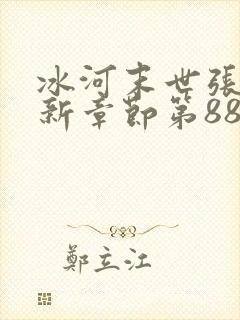 冰河末世張
新章節第88
鄭立江